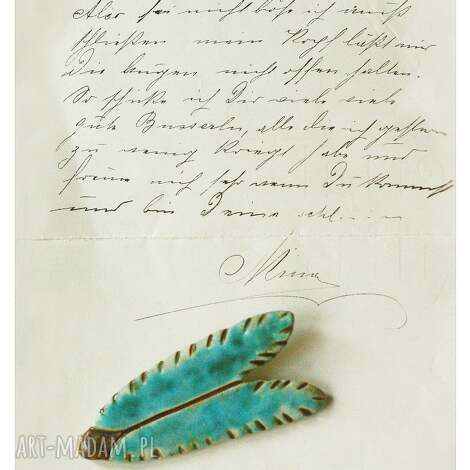 Also sei nicht böse ich muß
schließen mein Kopf läßt mir
die Augen nicht offen halten.
So schicke ich Dir viele viele
gute Busserln, alle die ich gestern
zu wenig kriegt habe und
freue mich sehr wenn Du kommst
und bin Deine schl....
Minna
ART-MADAM.PL